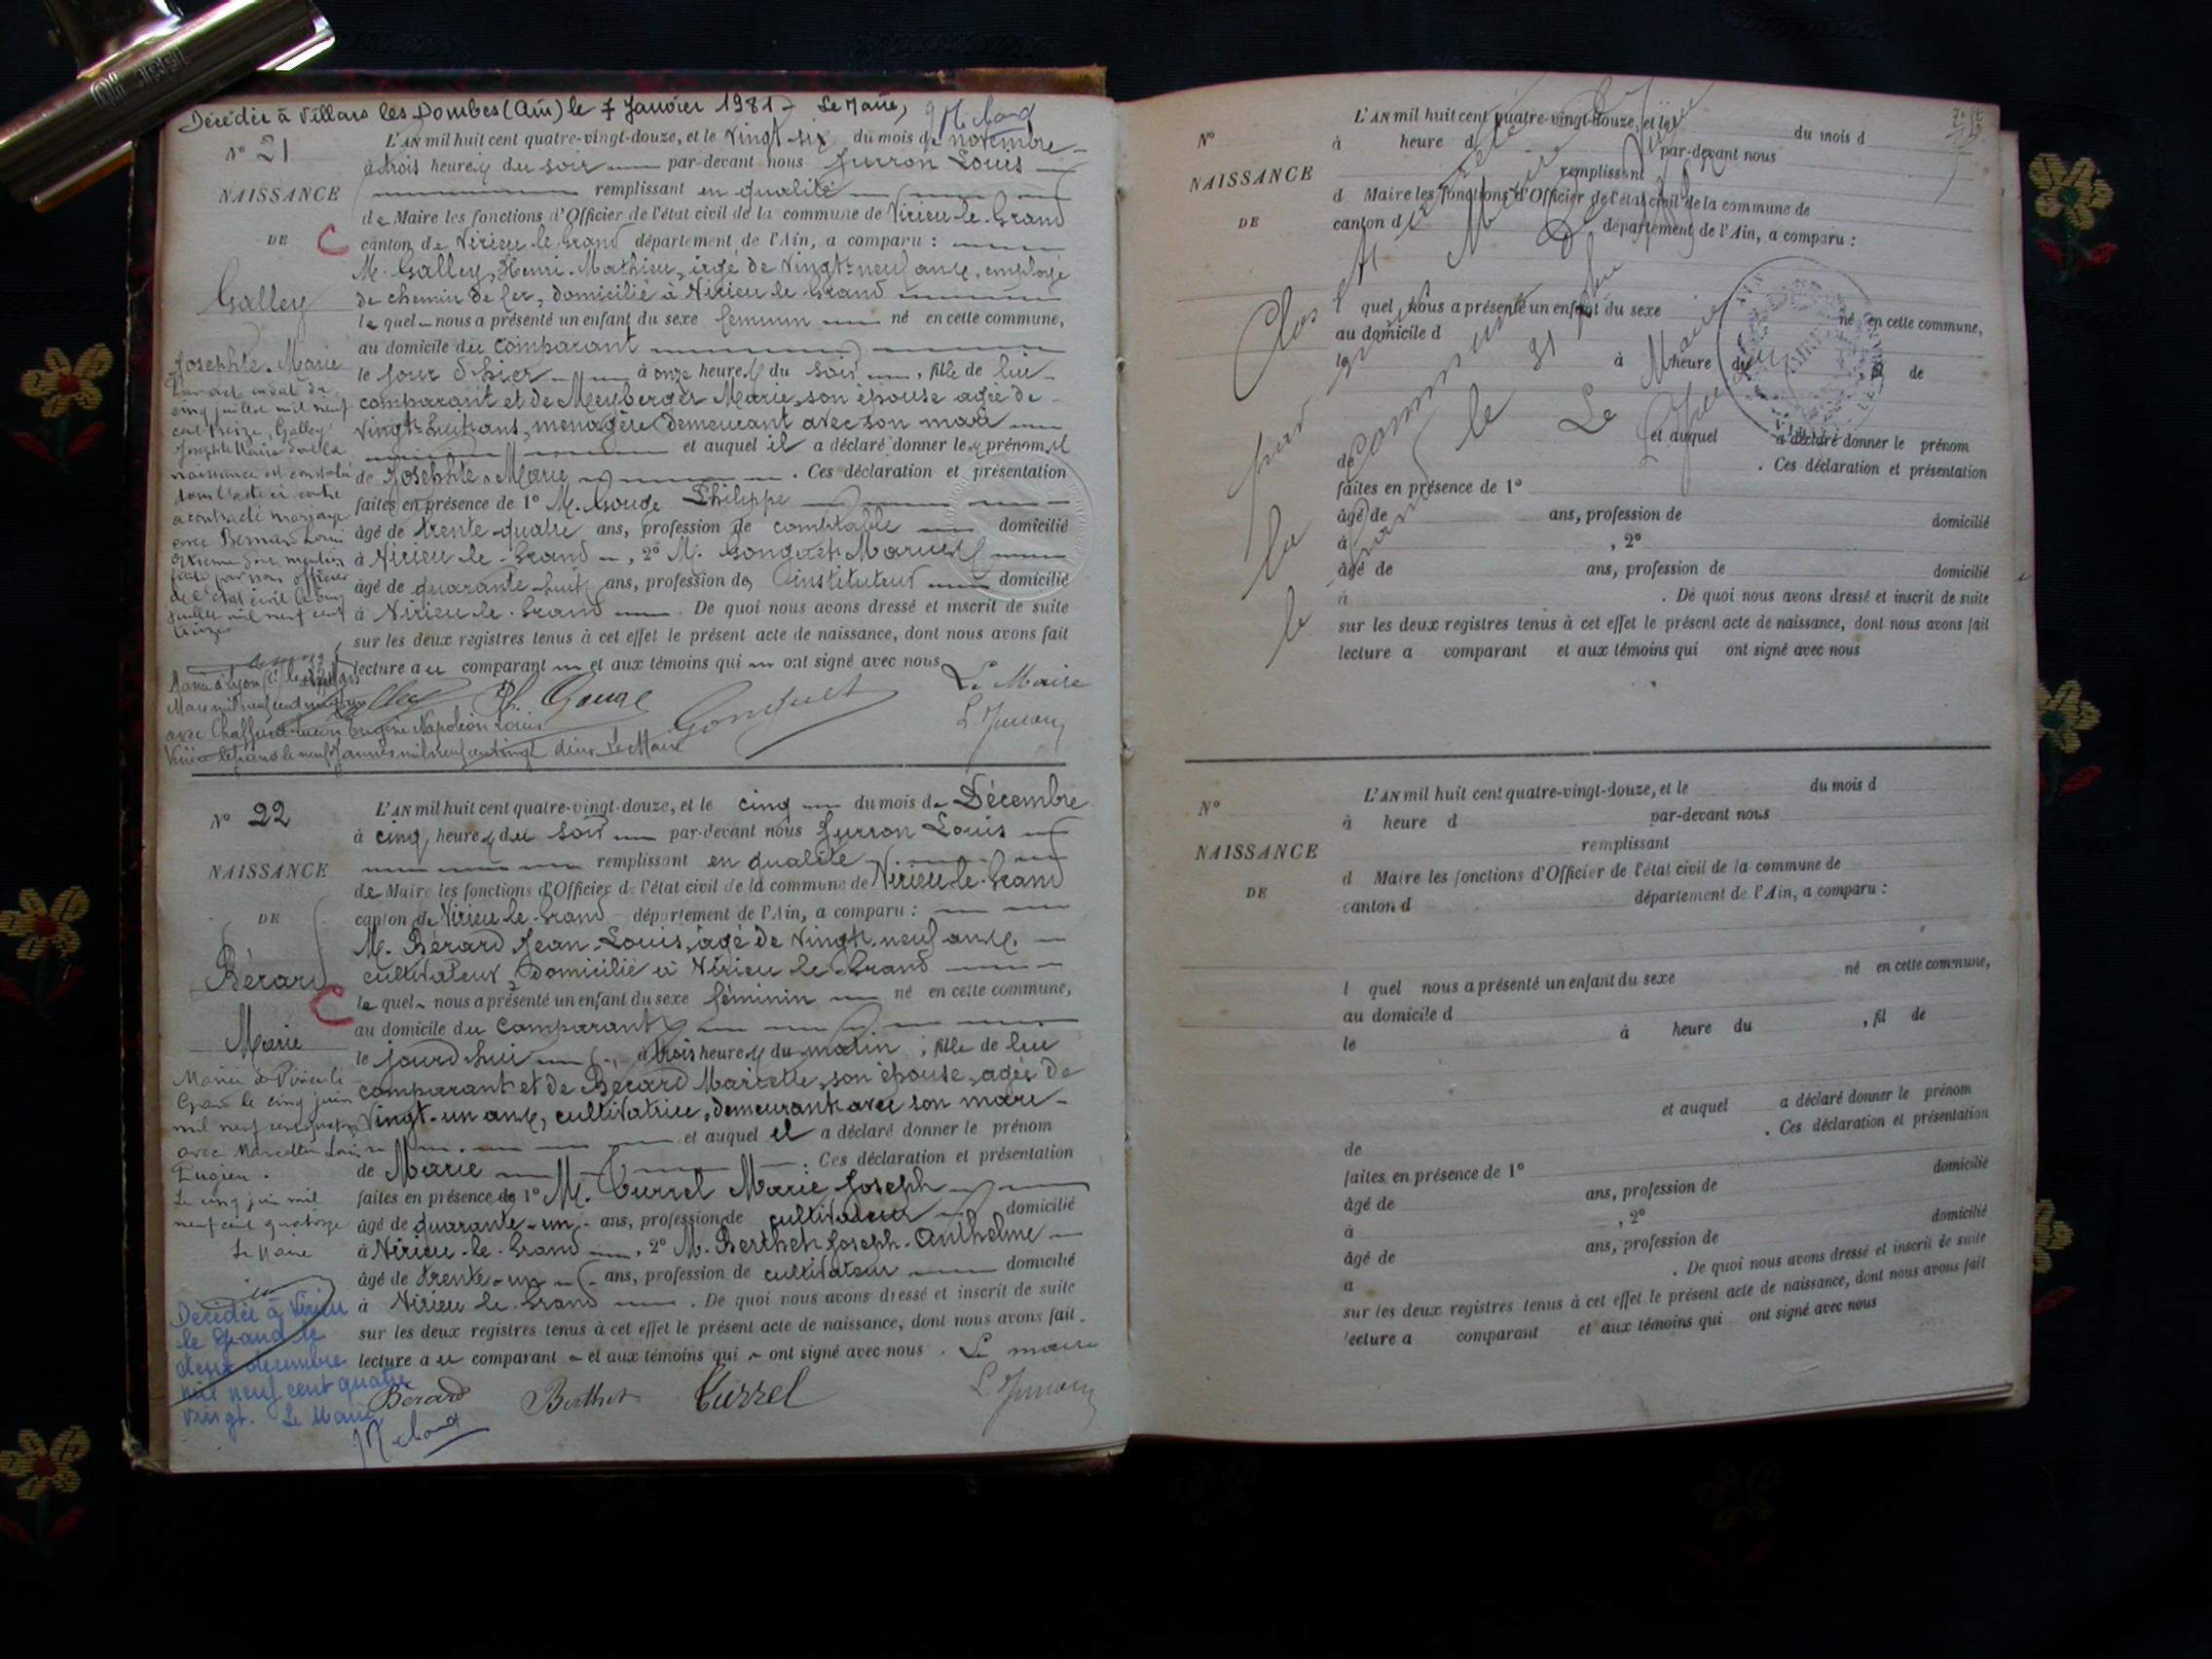 Décédée à Villars les Dombes (Ain) le 7 Janvier 1981 Le Maire,
N° 21
NAISSANCE
DE
Galley
Josephte Marie
L'AN mil huit cent quatre-vingt-douze, et le vingt-six du mois de novembre
à trois heures du soir par-devant nous Jurron Louis
remplissant en qualité
de Maire les fonctions d'Officier de l'état civil de la commune de Virieu-le-Grand
canton de Virieu-le-Grand département de l'Ain, a comparu :
M. Galley, Henri-Mathieu, âgé de vingt-neuf ans, employé
de chemin de fer, domicilié à Virieu le Grand
lequel nous a présenté un enfant du sexe féminin né en cette commune,
au domicile du comparant
le jour d'hier à onze heures du soir, fille de lui
comparant et de Meyberger Marie, son épouse agée de
vingt-huit ans, menagère demeurant avec son mari
et auquel il a déclaré donner les prénoms
de Josephte Marie. Ces déclaration et présentation
faites en présence de 1° M. Gouge Philippe
âgé de trente-quatre ans, profession de comptable domicilié
à Virieu-le-Grand, 2° M. Gonguet
âgé de quarante-huit ans, profession de instituteur domicilié
à Virieu-le-Grand. De quoi nous avons dressé et inscrit de suite
sur les deux registres tenus à cet effet le présent acte de naissance, dont nous avons fait
lecture au comparant et aux témoins qui ont signé avec nous
Le Maire
Par acte en date du
cinq juillet mil neuf
cent treize, Galley
Josephte Marie dont la
naissance est constatée
dans l'acte ci contre
a contracté mariage
avec Bernard Louis
de l'état civil
juillet mil neuf cent
treize
avec Eugène Napoléon Louis
Virieu le Grand le neuf Janvier mil neuf cent vingt deux Le Maire
N° 22
NAISSANCE
DE
Bérard
Marie
L'AN mil huit cent quatre-vingt-douze, et le cinq du mois de Décembre
à cinq heures du soir par-devant nous Jurron Louis
remplissant en qualité
de Maire les fonctions d'Officier de l'état civil de la commune de Virieu-le-Grand
canton de Virieu-le-Grand département de l'Ain, a comparu :
M. Bérard Jean-Louis, âgé de vingt-neuf ans,
cultivateur, domicilié à Virieu le Grand
lequel nous a présenté un enfant du sexe féminin né en cette commune,
au domicile du comparant
le jourd'hui à trois heures du matin, fille de lui
comparant et de Bérard Mariette, son épouse, agée de
vingt-un ans, cultivatrice, demeurant avec son mari
et auquel il a déclaré donner le prénom
de Marie. Ces déclaration et présentation
faites en présence de 1° M. Curzel Marie Joseph
âgé de quarante-un ans, profession de cultivateur domicilié
à Virieu-le-Grand, 2° M. Berthet Joseph-Anthelme
âgé de trente-un ans, profession de cultivateur domicilié
à Virieu le Grand. De quoi nous avons dressé et inscrit de suite
sur les deux registres tenus à cet effet le présent acte de naissance, dont nous avons fait
lecture au comparant et aux témoins qui ont signé avec nous. Le maire
Bérard Berthet Curzel
Mariée à Virieu le
Grand le cinq juin
mil neuf cent quatorze
avec Marcellin Louis
Eugien.
Le cinq juin mil
neuf cent quatorze
Le Maire
Décédée à Virieu
le Grand le
deux décembre
mil neuf cent quatre
vingt. Le Maire
L'AN mil huit cent quatre-vingt-douze, et le du mois d
N° à heure d par-devant nous
NAISSANCE remplissant
d Maire les fonctions d'Officier de l'état civil de la commune de
DE canton d département de l'Ain, a comparu :
l quel nous a présenté un enfant du sexe né en cette commune,
au domicile d
le à heure du , fil de
et auquel a déclaré donner le prénom
de . Ces déclaration et présentation
faites en présence de 1°
âgé de ans, profession de domicilié
à , 2°
âgé de ans, profession de domicilié
à . De quoi nous avons dressé et inscrit de suite
sur les deux registres tenus à cet effet le présent acte de naissance, dont nous avons fait
lecture a comparant et aux témoins qui ont signé avec nous
Clos et arrêté
par nous Maire de
la commune de Virieu
le Grand le 31
Le Maire
L'AN mil huit cent quatre-vingt-douze, et le du mois d
N° à heure d par-devant nous
NAISSANCE remplissant
d Maire les fonctions d'Officier de l'état civil de la commune de
DE canton d département de l'Ain, a comparu :
l quel nous a présenté un enfant du sexe né en cette commune,
au domicile d
le à heure du , fil de
et auquel a déclaré donner le prénom
de . Ces déclaration et présentation
faites en présence de 1°
âgé de ans, profession de domicilié
à , 2°
âgé de ans, profession de domicilié
a . De quoi nous avons dressé et inscrit de suite
sur les deux registres tenus à cet effet le présent acte de naissance, dont nous avons fait
lecture a comparant et aux témoins qui ont signé avec nous